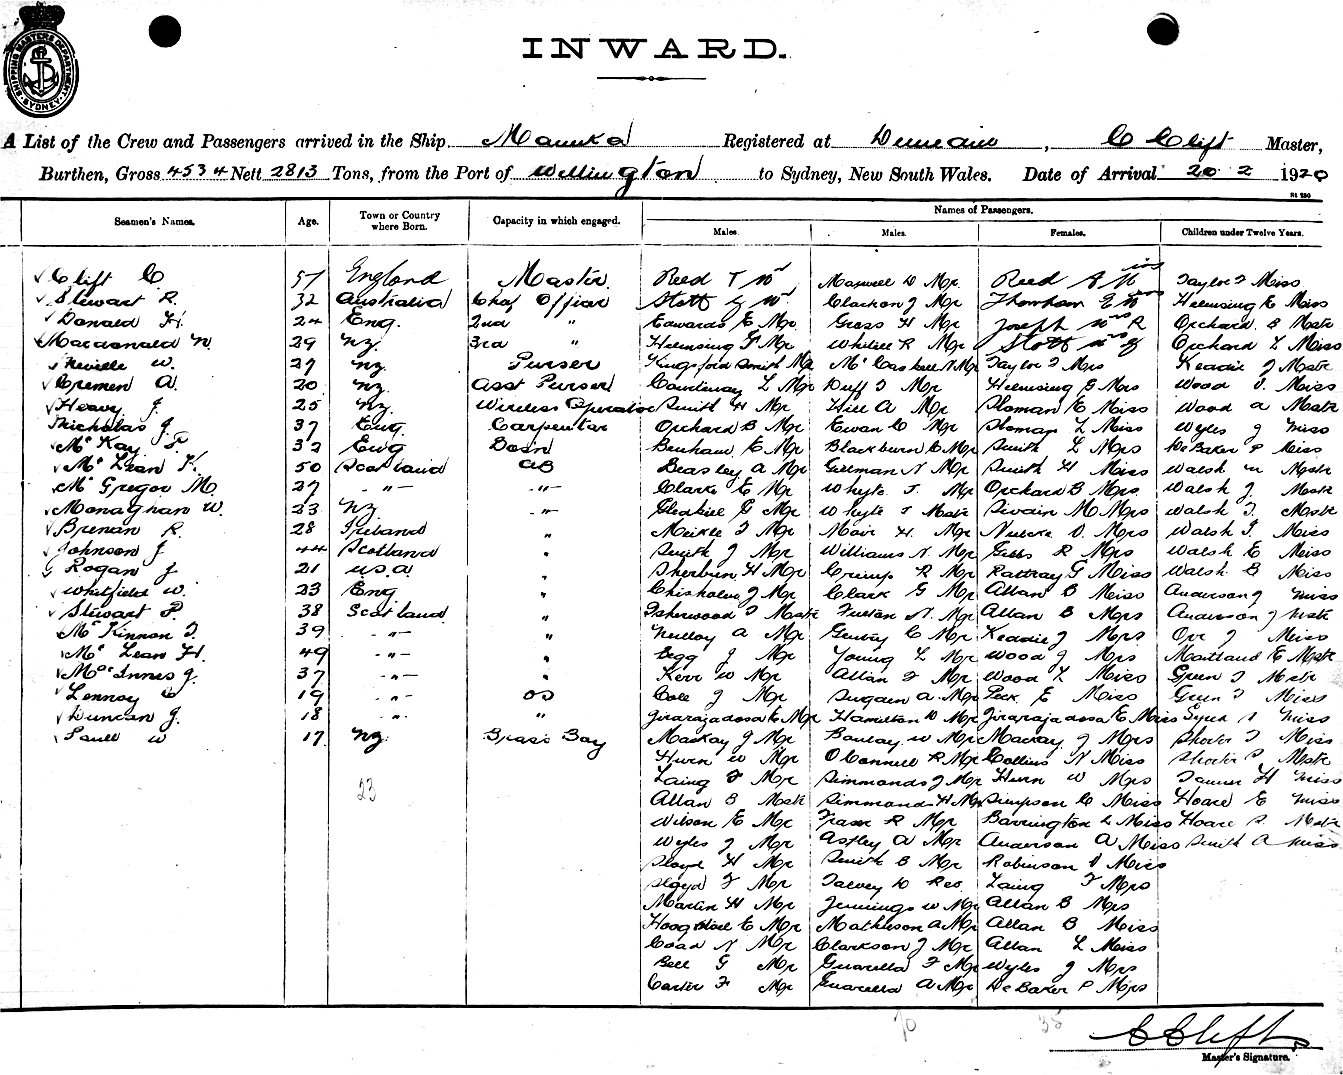 SHIPPING MASTERS DEPARTMENT SYDNEY
INWARD.
A List of the Crew and Passengers arrived in the Ship Manuka Registered at Dunedin, C Clift Master,
Burthen, Gross 4534 Nett 2813 Tons, from the Port of Wellington to Sydney, New South Wales. Date of Arrival 20 2 1920
Names of Passengers.
Seamen's Names. Age. Town or Country where Born. Capacity in which engaged. Males. Males. Females. Children under Twelve Years.
Clift C 57 England Master Reed T Maxwell D Mr Reed A Taylor I Miss
Stewart R. 32 Australia Chief Officer Stott G Clarkson J Mr Helmsing E Miss
Donald H. 24 Eng. 2nd " Edwards E Mr Gross H Mr Joseph Mrs R Orchard B Mstr
Macdonald N. 29 NZ. 3rd " Helmsing F Mr R Mr Stott Mrs G Orchard L Miss
Neville W. 27 NZ. Purser Kingsford Smith Mr McCaskell N Mr Taylor I Mrs Keadie J Mstr
Cremen A. 20 NZ. Asst Purser Courtenay L Mr Duff I Mr Helmsing G Mrs Wood I. Miss
Heavy J. 25 NZ. Wireless Operator Smith H Mr Hill A Mr Sloman E Miss Wood A Mstr
Nicholas J. 37 Eng. Carpenter Orchard B Mr Ewan C Mr Sloman L Miss Wyles J Miss
McKay F. 32 Eng Bosn Benham E Mr Blackburn C Mr Smith L Mrs DeBaker P Miss
McLean H. 50 Scotland AB Beasley A Mr Gillman N Mr Smith H Miss Walsh M Mstr
McGregor M. 27 -"- -"- Clarke E Mr Whyte J. Mr Orchard B Mrs Walsh J. Mstr
Monaghan W. 23 NZ. -"- G Mr Whyte I Mstr Swain M Mrs Walsh I. Mstr
Brenan R. 28 Ireland " Meikle I Mr Moir H. Mr D. Mrs Walsh I. Miss
Johnson J 44 Scotland " Smith J Mr Williams N. Mr Gibbs R Mrs Walsh E Miss
Rogan J 21 U.S.A. " Sherburn H Mr Crump R Mr Rattray G Miss Walsh B Miss
Whitfield W. 23 Eng " Chisholm J Mr Clark G Mr Allan B Miss Anderson J Miss
Stewart P. 38 Scotland " Isherwood I Mstr Fulton N. Mr Allan B Mrs Anderson J Mstr
McKinnon I. 39 -"- " Mulloy A Mr C Mr Keadie J Mrs Orr J Miss
McLean H. 49 -"- " Begg J Mr Young L Mr Wood J Mrs Maitland E Mstr
McInnes J. 37 -"- " Kerr W Mr Allan I Mr Wood L Miss Green I Mstr
Lennox C 19 -"- OS Cole J Mr A. Mr Peek E Miss Green I Miss
Duncan J. 18 -"- " Jirarajadasa C Mr Hamilton D Mr Jirarajadasa E Miss Miss
Saull W 17 NZ. Brass Boy Mackay J Mr Barclay W Mr Mackay J Mrs Shorter I Miss
Hurn W Mr O'Connell R Mr Collins N Miss Shorter S Mstr
23 Laing F Mr Simmonds J Mr Hurn W Mrs Tanner H Miss
Allan B Mstr Simmonds H Mr Simpson C Miss Hoare E Miss
Wilson E Mr Fraser R Mr Barrington L Miss Hoare S. Mstr
Wyles J Mr Astley A Mr Anderson A Miss Smith A Miss
Lloyd H Mr Smith B Mr Robinson D Miss
Lloyd F Mr Talvey D Rev. Laing F Mrs
Martin H Mr Jennings W Mr Allan B Mrs
E Mr Matheson A Mr Allan B Miss
Coad N Mr Clarkson J Mr Allan L Miss
Bell G Mr Guarella F Mr Wyles J Mrs
Carter F Mr Guarella A Mr DeBaker P Mrs
70 35
C Clift
Master's Signature.